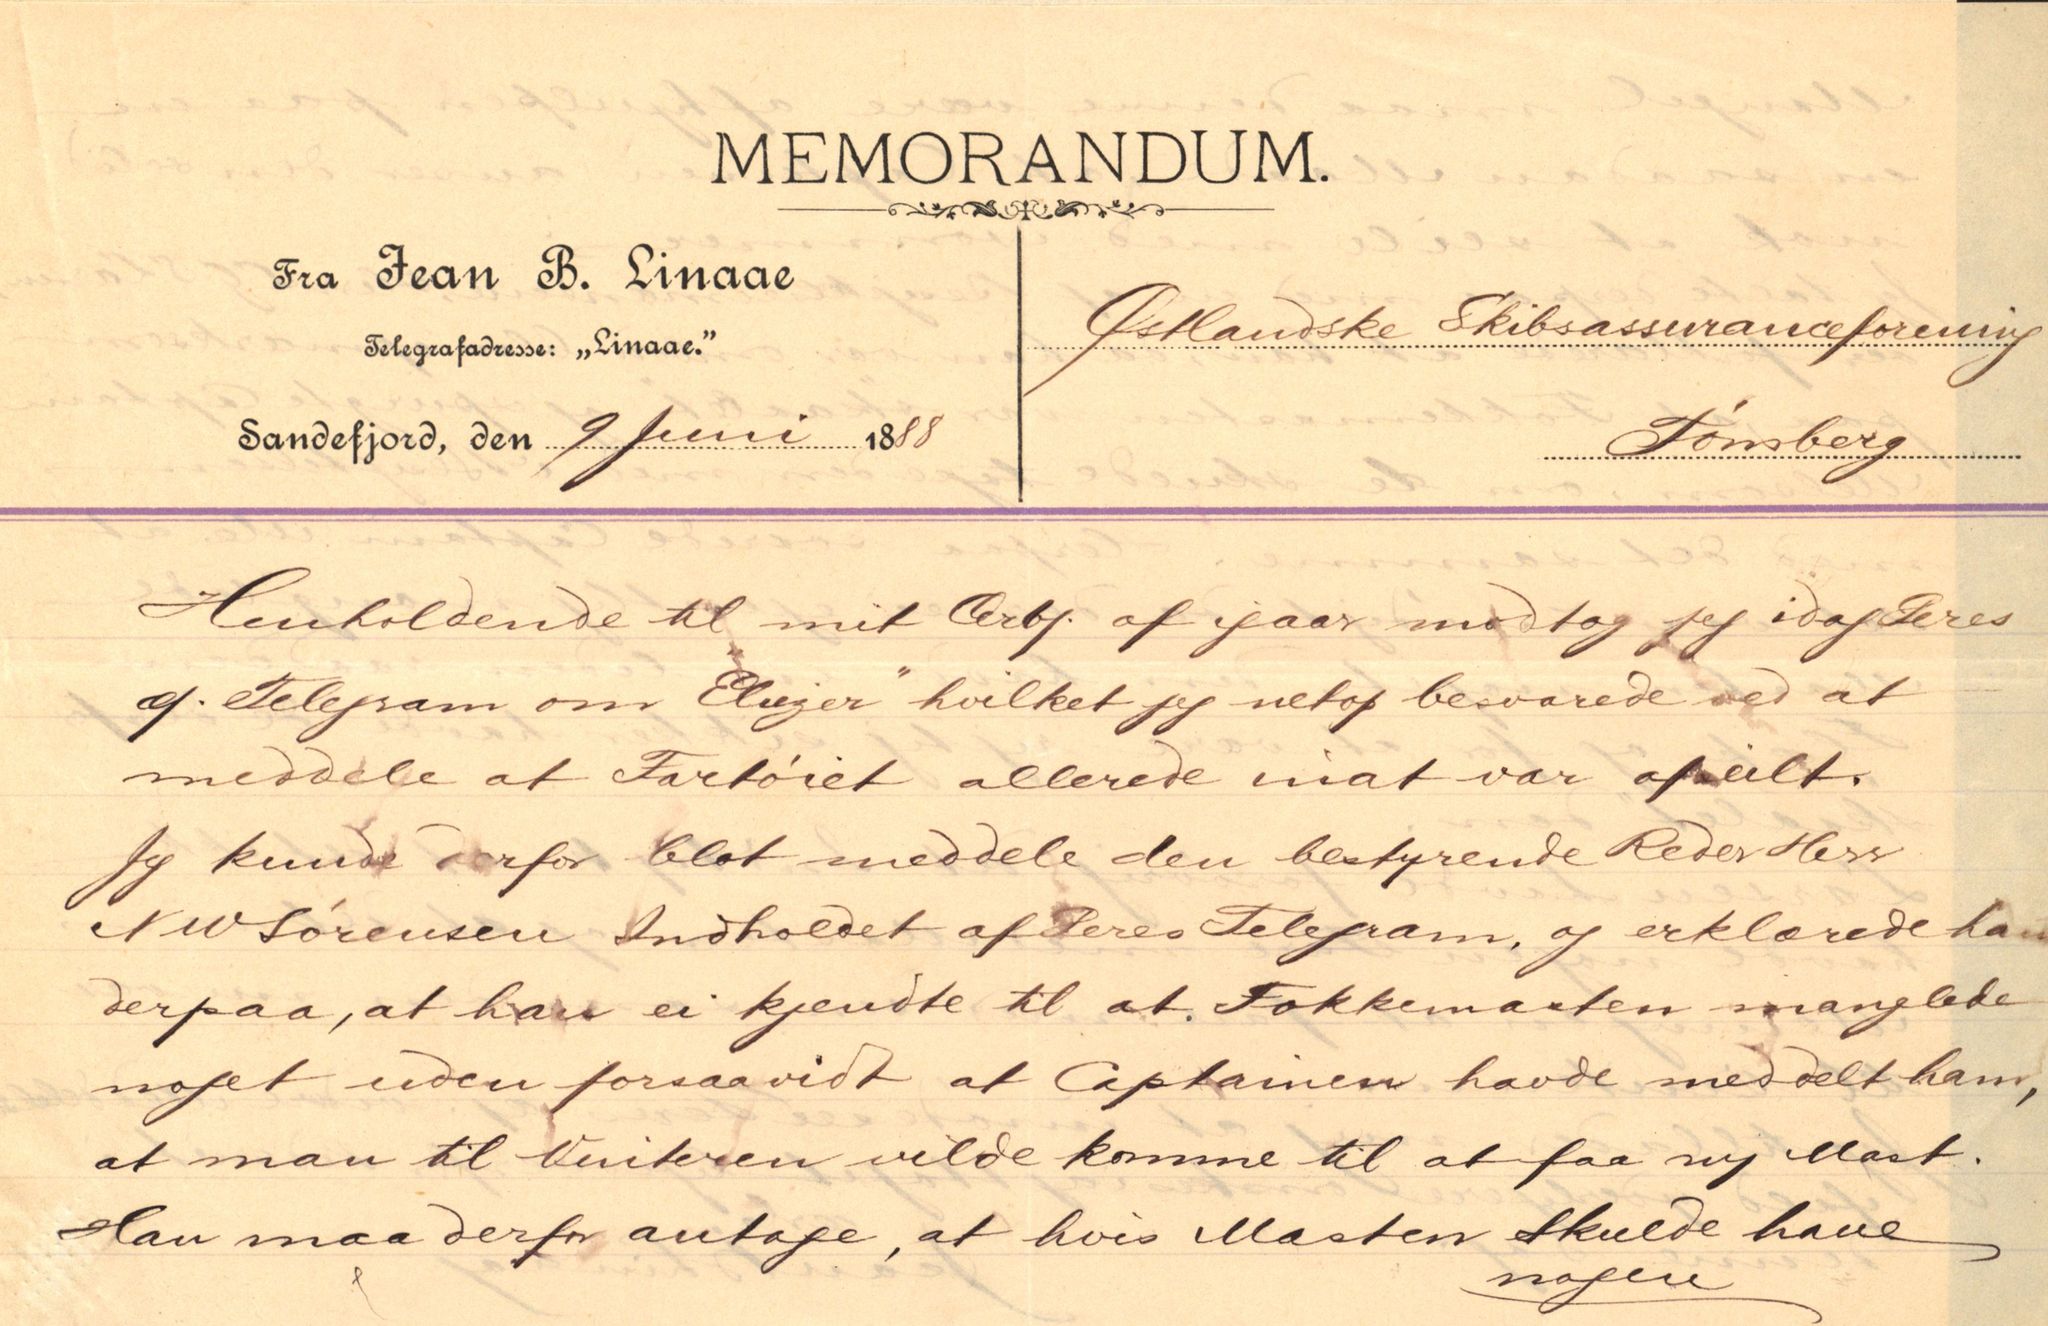 MEMORANDUM.
Fra Jean B. Linaae
Telegrafadresse: „Linaae."
Sandefjord, den 9 Juni 1888
Østlandske Skibsassuranceforening
Tønsberg
Henholdende til mit Ærbj. af igaar modtog jeg idag Deres
gj. Telegram om "Eliezer" hvilket jeg netop besvarede ved at
meddele at Fartøiet allerede inat var afseilt.
Jeg kunde derfor blot meddele den bestyrende Reder Herr
N W Sørensen Indholdet af Deres Telegram, og erklærede han
derpaa, at han ei kjendte til at Fokkemasten manglede
noget uden forsaavidt at Captainen havde meddelt ham,
at man til Vinteren vilde komme til at faa ny Mast.
Han maa derfor antage, at hvis Masten skulde have
nogen